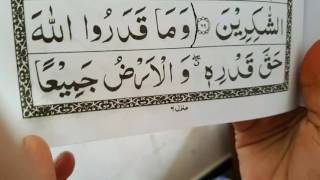 الشّٰكِرِيْنَ ۝ وَمَا قَدَرُوا اللّٰهَ
حَقَّ قَدْرِهٖ ۖ وَالْاَرْضُ جَمِيْعًا